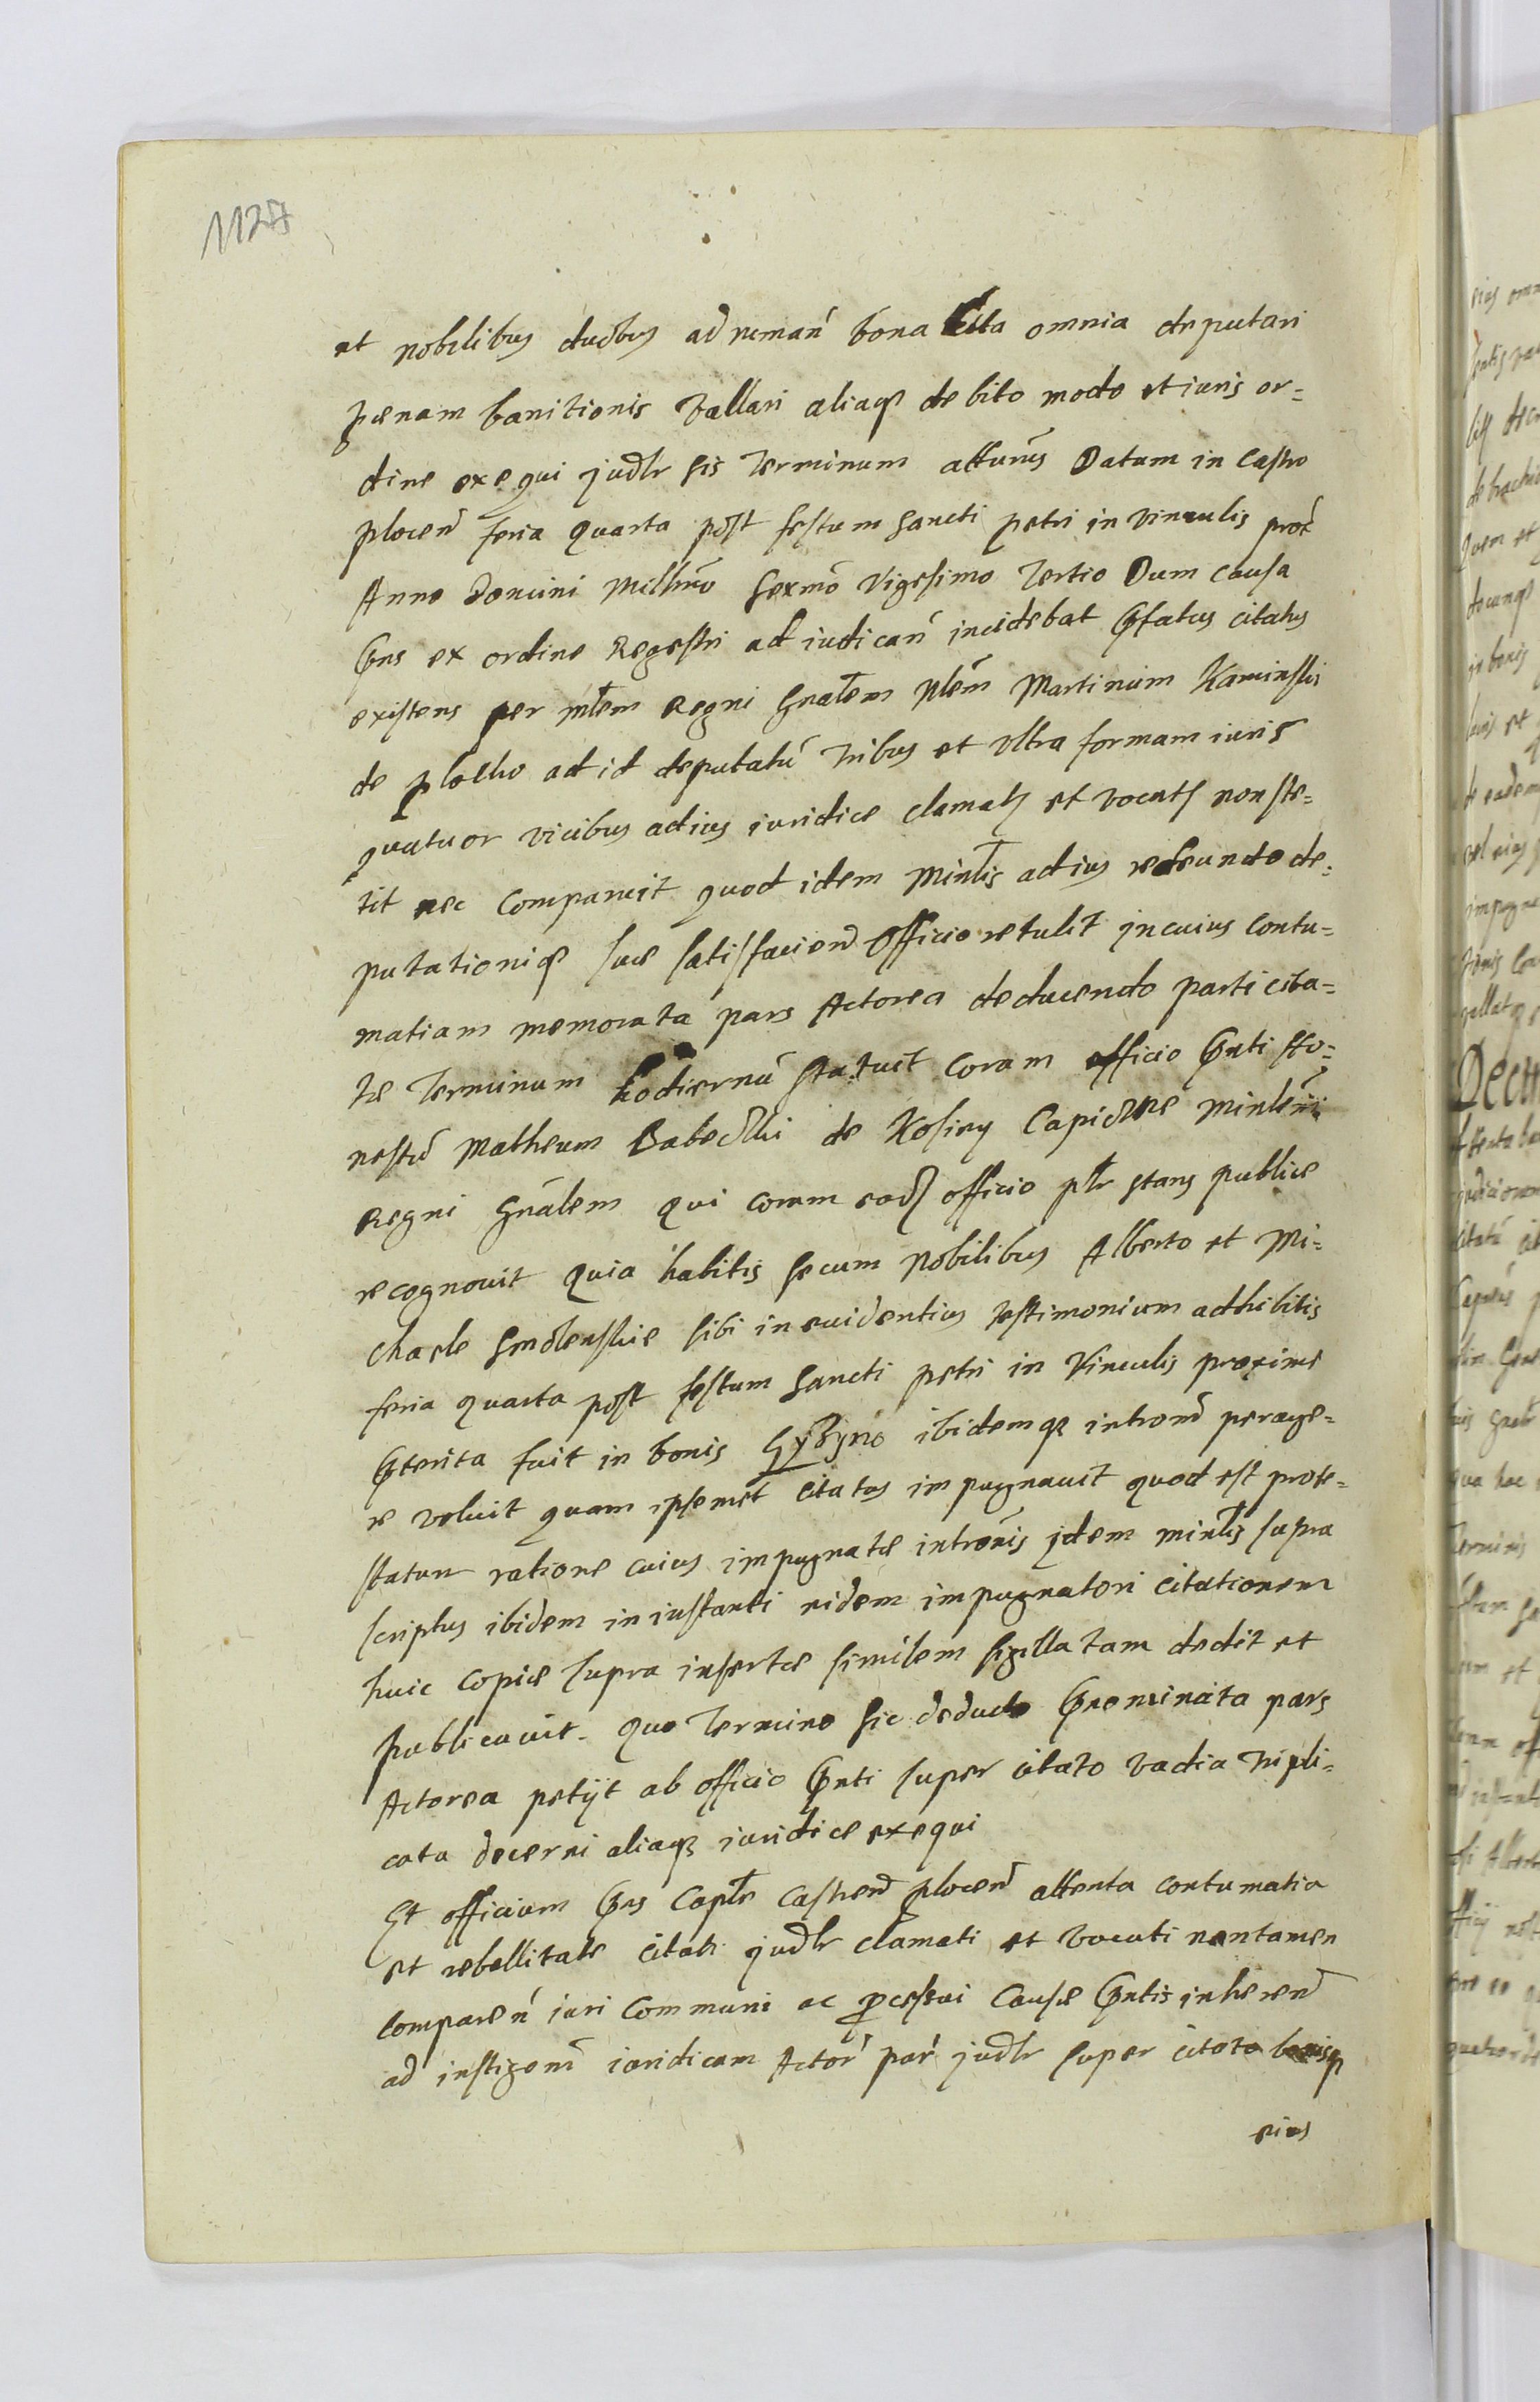 112A
et nobilibus duobus ad reman̄ bona illa omnia deputari
pænam banitionis vallari aliaq̨ debito modo et iuris or=
dine exequi judlr sis terminum attunūs Datum in Castro
plocen̄ feria quarta post festum Sancti petri in vinculis prox̄
Anno Domini Millm̄o Sexm̄o Vigesimo Tertio Dum Causa
Pn̄s ex ordine Regestri ad iudican̄ incidebat Pfatus citatus
existens per mlem Regni Gnalem Nlem̄ Martinum Kaminski
de plocko ad id deputatū tribus et vltra formam iuris
quatuor vicibus ad ius iuridice clamatq̨ et vocatq̨ non ste=
tit nec comparuit quod idem Minlis ad ius redeundo de=
putationiq̨ suæ satisfaciend Officio retulit jn cuius contu=
matiam memorata pars Actorea deducendo parti cita=
tæ Terminum hodiernū statuit Coram officio Pnti Ho=
nestū Matheum Babecki de Kosiny Minlem̄
Regni Gnalem qui coram eodq̨ officio plr stans publice
recognouit Quia habitis secum Nobilibus Alberto et Mi=
chaele Smolenskie sibi in euidentius testimonium adhibitis
feria quarta post festum Sancti petri in Vinculis proxime
Pterita fuit in bonis ibidemq̨ introm̄ perage=
re voluit quam ipsemet citatus impugnauit quod est prote=
statum ratione cuius impugnatæ intronīs jdem minlis supra
scriptus ibidem in instanti eidem impugnatori Citationem
huic Copiæ supra insertæ similem sigillatam dedit et
publicauit. quo Termino sic deducto Pnominata pars
Actorea petijt ab officio Pnti super citato vadia tripli=
cata decerni aliaq̨ iuridice exequi
Et officium Pns Caple Castren̄ plocen̄ attenta contumatia
et rebellitate citati judlr clamati et vocati non tamen
comparen̄ iuri Communi ac pcessui Causæ Pntis inheren̄
ad instigom̄ iuridicam Actor̄ par̄ judlr super citato bonisq̨
eius